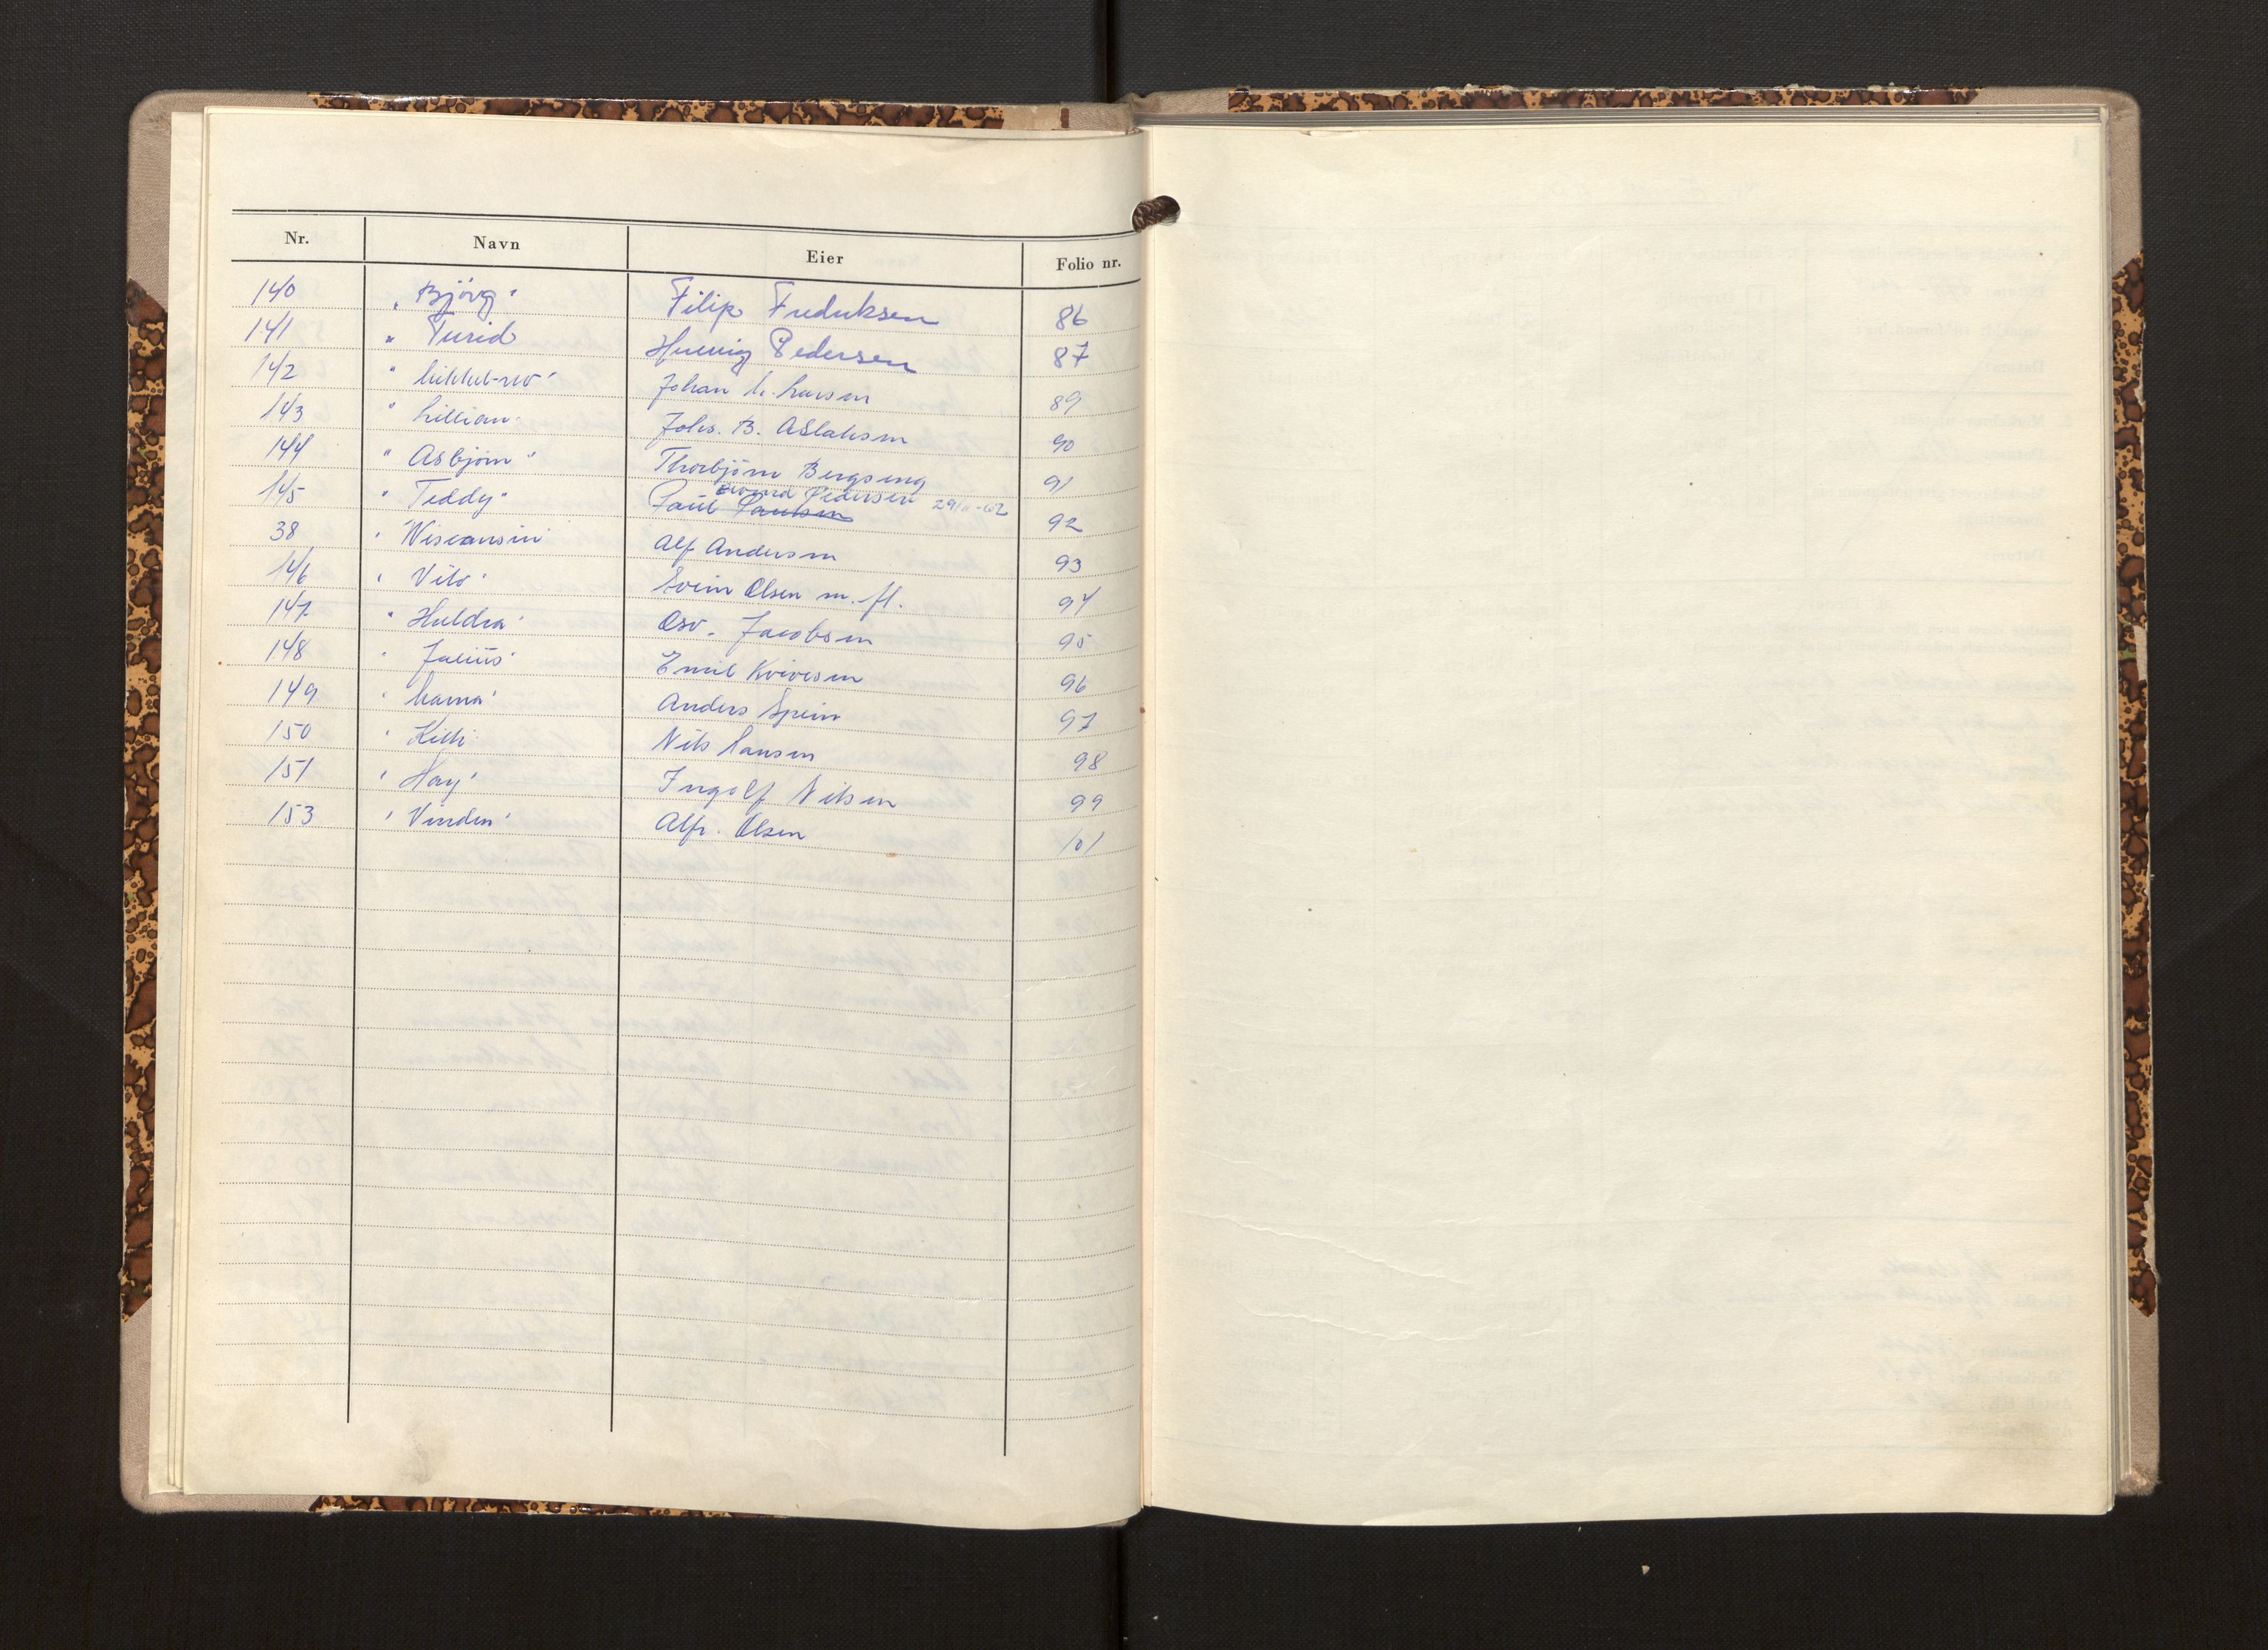 Nr. Navn Eier Folio nr.
140 "Björg" Filip Fredriksen 86
141 " Turid Henvig Pedersen 87
142 " Johan M. Larsen 89
143 " Lillian" Johs. B. Aslaksen 90
144 " Asbjörn" Thorbjörn Bergseng 91
Eivind Pedersen 29/11-62
145 " Teddy" Paul Paulsen 92
38 "Wisconsin" Alf Andersen 93
146 " Vito" Svein Olsen m. fl. 94
147 " Huldra" Osv. Jacobsen 95
148 " Julius" Emil Kvivesen 96
149 " Mama" Anders Spein 97
150 " Kitti" Nils Hansen 98
151 " Hay" Ingolf Nilsen 99
153 " Vinden" Alfr. Olsen 101